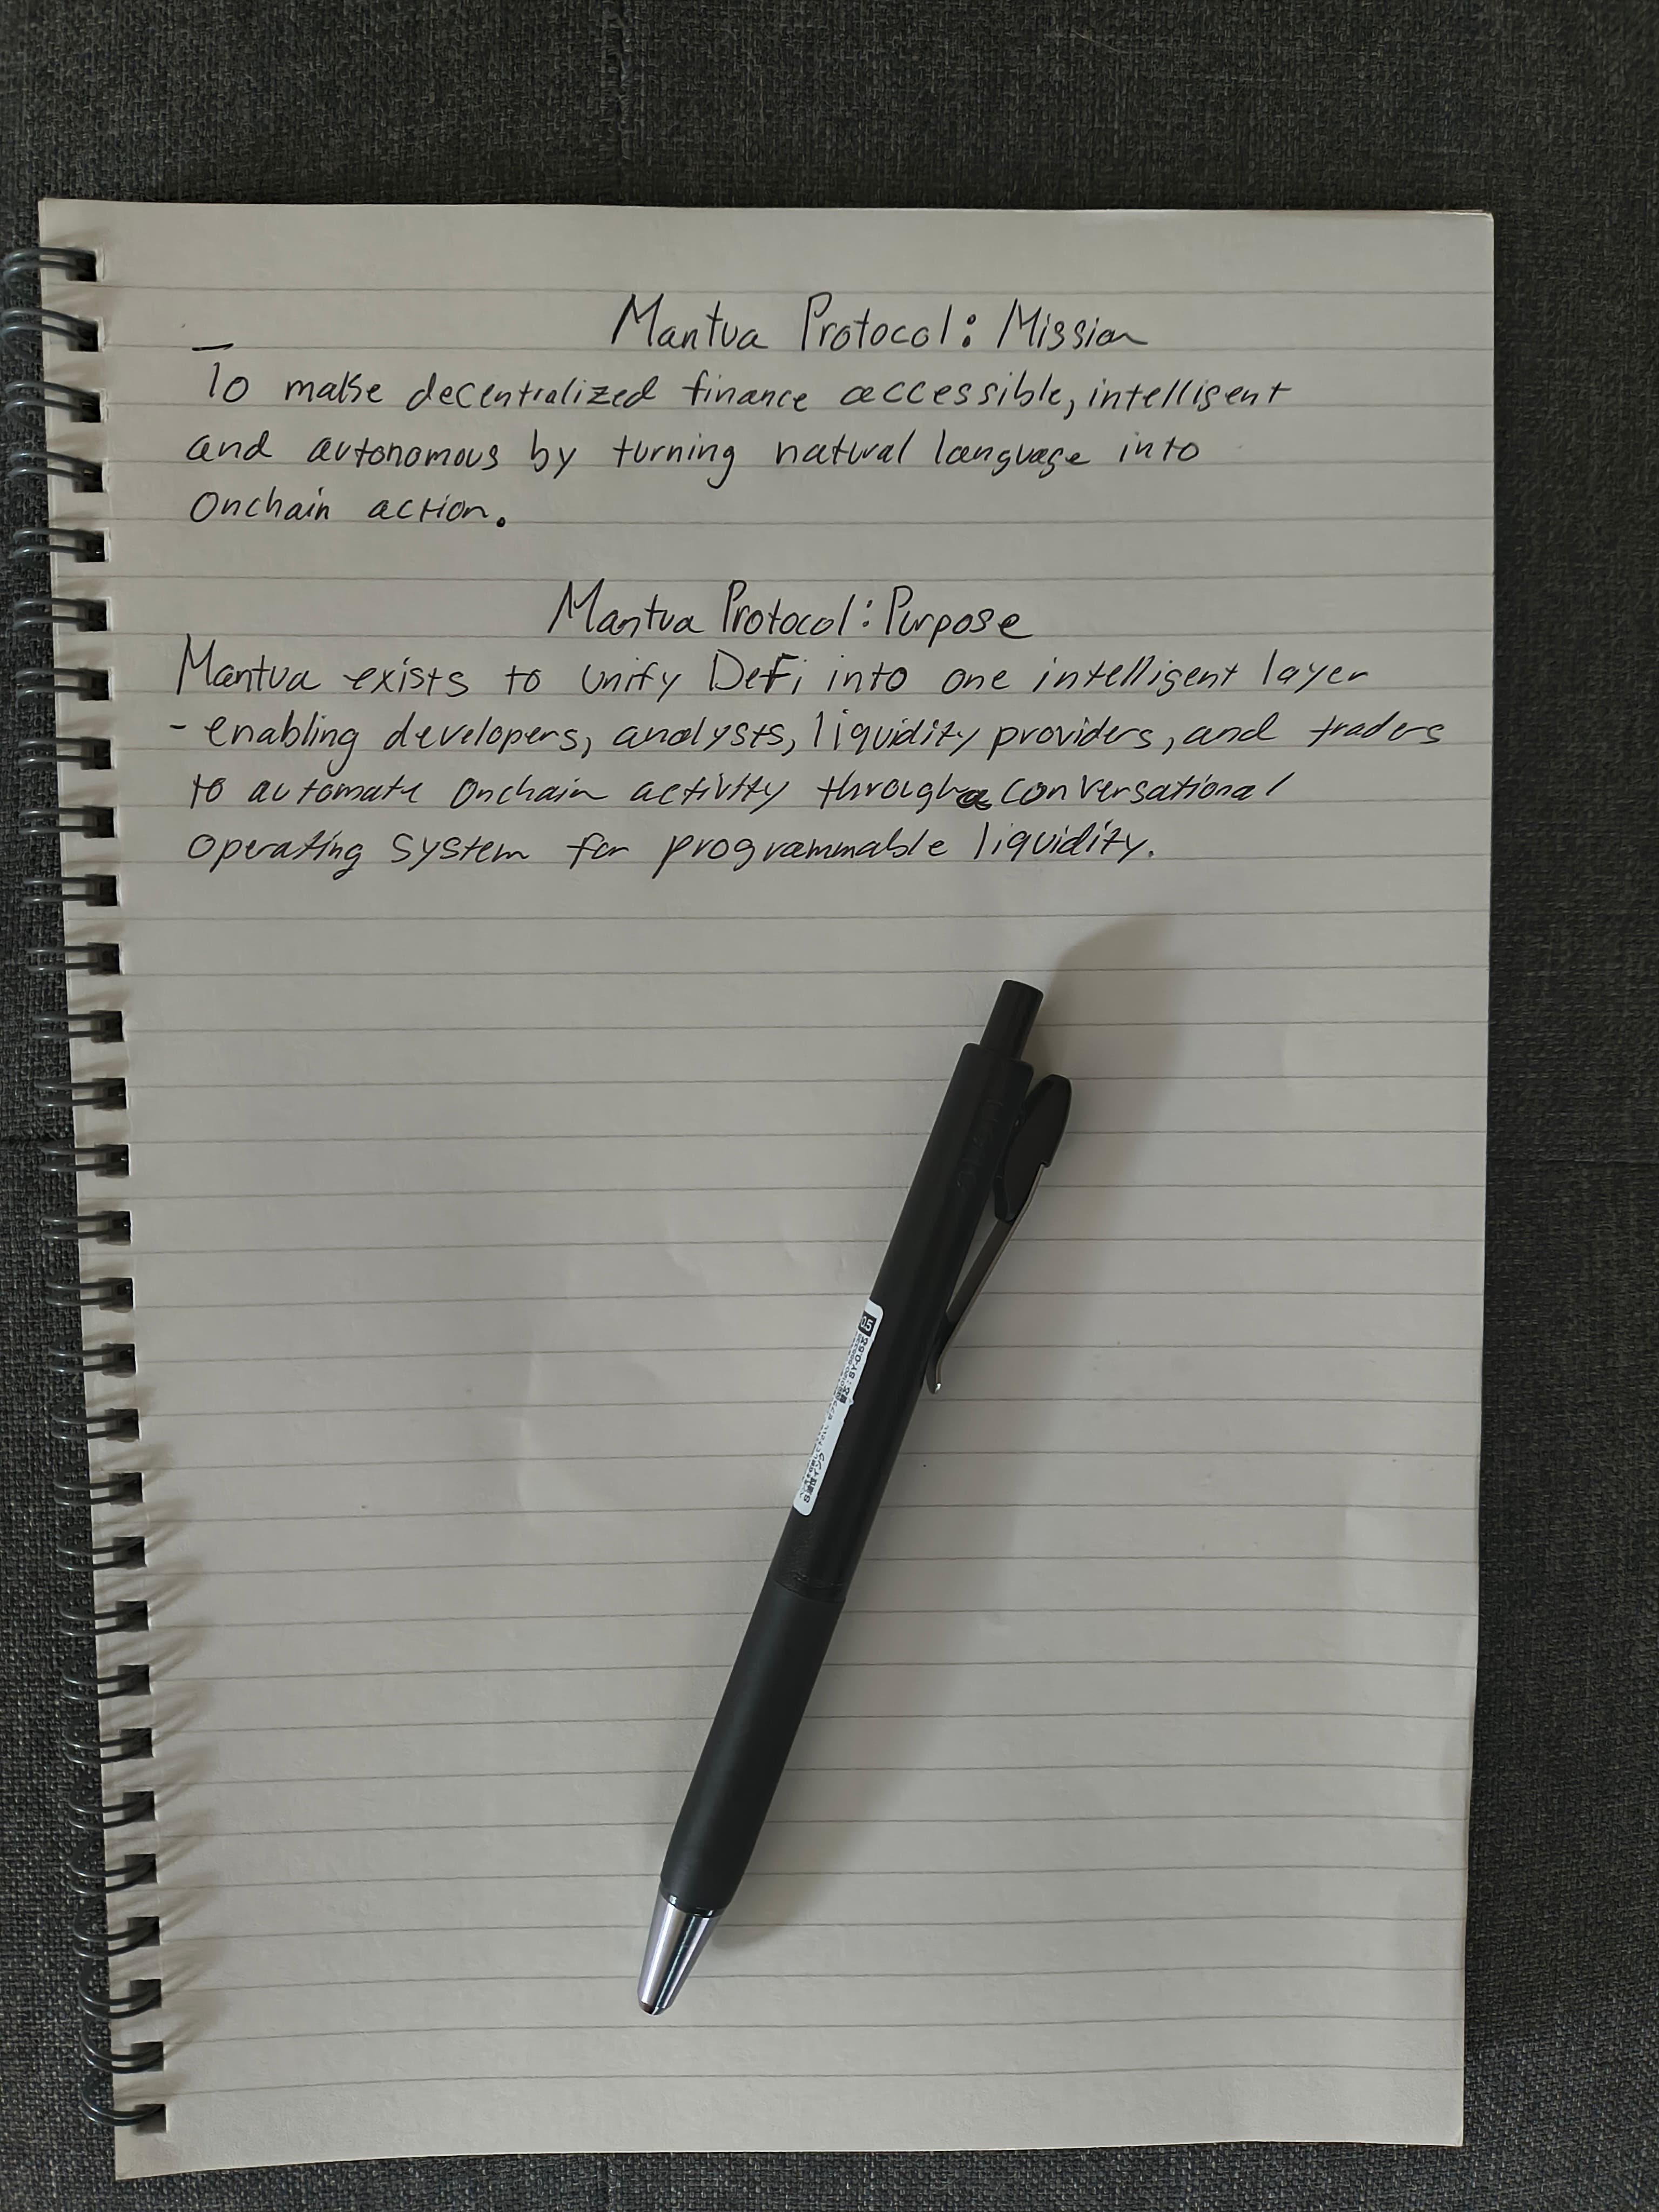 Mantua Protocol: Mission
To make decentralized finance accessible, intelligent
and autonomous by turning natural language into
Onchain action.
Mantua Protocol: Purpose
Mantua exists to unify DeFi into one intelligent layer
- enabling developers, analysts, liquidity providers, and traders
to automate Onchain activity through a conversational
Operating System for programmable liquidity.
0.5